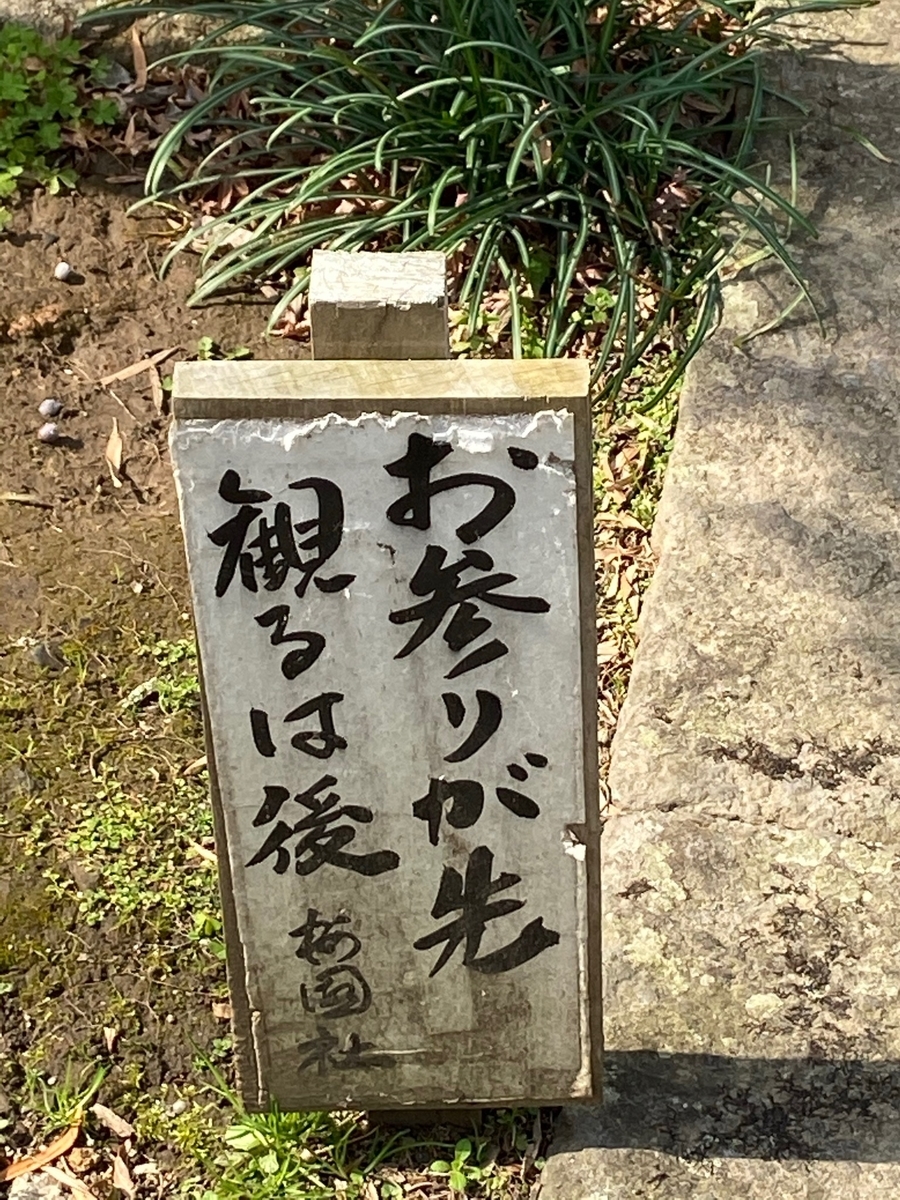 お参りが先
観るは後
梅園社